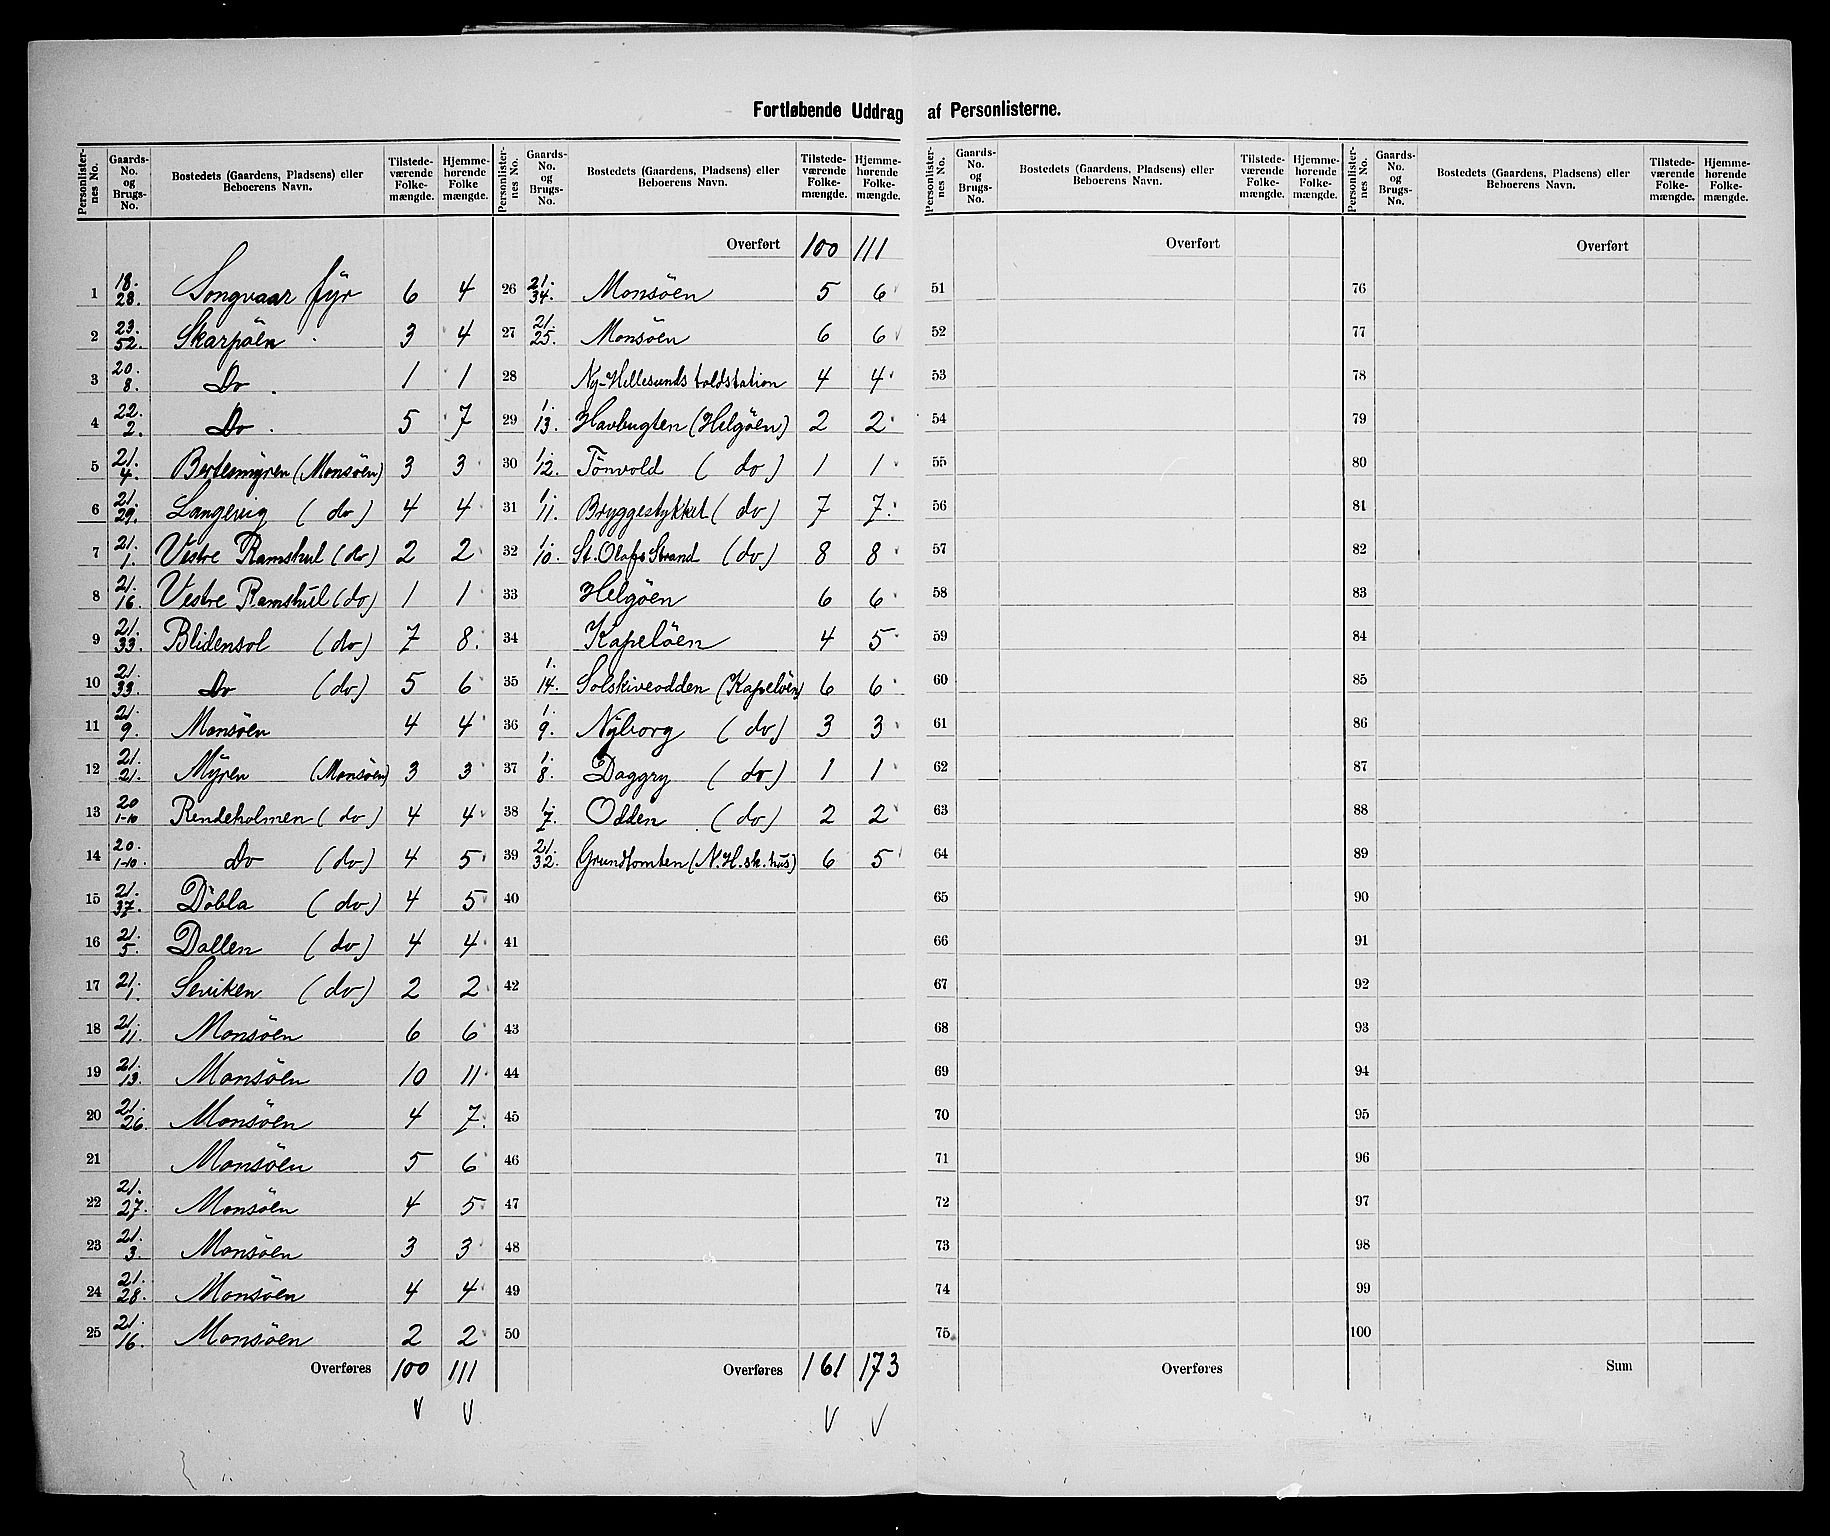 Fortløbende Uddrag af Personlisterne.
Personlister-nes No. | Gaards-No. og Brugs-No. | Bostedets (Gaardens, Pladsens) eller Beboerens Navn. | Tilstede-værende Folke-mængde. | Hjemme-hørende Folke mængde.
1 | 18. 28. | Songvaar fyr | 6 | 4
2 | 23. 52. | Skarpöen | 3 | 4
3 | 20. 8. | Do. | 1 | 1
4 | 22. 2. | Do. | 5 | 7
5 | 21. 4. | Bertesmyren (Monsöen) | 3 | 3
6 | 21. 29. | Langevig (do) | 4 | 4
7 | 21. 1. | Vestre Ramshul (do) | 2 | 2
8 | 21. 16. | Vestre Ramshul (do) | 1 | 1
9 | 21. 33. | Blidensol (do) | 7 | 8
10 | 21. 33. | Do (do) | 5 | 6
11 | 21. 9. | Monsöen | 4 | 4
12 | 21. 21. | Myren (Monsöen) | 3 | 3
13 | 20 1-10 | Rendeholmen (do) | 4 | 4
14 | 20. 1-10. | Do (do) | 4 | 5
15 | 21. 37. | Döbla (do) | 4 | 5
16 | 21. 5. | Dallen (do) | 4 | 4
17 | 21. 1. | Seviken (do) | 2 | 2
18 | 21. 11. | Monsöen | 6 | 6
19 | 21. 13. | Monsöen | 10 | 11
20 | 21. 26. | Monsöen | 4 | 7
21 | Monsöen | 5 | 6
22 | 21. 27. | Monsöen | 4 | 5
23 | 21. 3. | Monsöen | 3 | 3
24 | 21. 28. | Monsöen | 4 | 4
25 | 21. 16. | Monsöen | 2 | 2
Overføres | 100 | 111
Personlister-nes No. | Gaards-No. og Brugs-No. | Bostedets (Gaardens, Pladsens) eller Beboerens Navn. | Tilstede-værende Folke-mængde. | Hjemme-hørende Folke-mængde.
Overført | 100 | 111
26 | 21. 34. | Monsöen | 5 | 6
27 | 21. 25. | Monsöen | 6 | 6
28 | Ny-Hellesunds toldstation | 4 | 4
29 | 1. 13. | Havbugten (Helgöen) | 2 | 2
30 | 1. 12. | Tönvold (do) | 1 | 1
31 | 1. 11. | Bryggestykket (do) | 7 | 7
32 | 1. 10. | St. Olafs Strand (do) | 8 | 8
33 | Helgöen | 6 | 6
34 | Kapelöen | 4 | 5
35 | 1. 14. | Solskiveodden (Kapelöen) | 6 | 6
36 | 1. 9. | Nyborg (do) | 3 | 3
37 | 1. 8. | Daggry (do) | 1 | 1
38 | 1. 7. | Odden (do) | 2 | 2
39 | 21. 32. | Grundtomten (N.H. sk. hus) | 6 | 5
40
41
42
43
44
45
46
47
48
49
50
Overføres | 161 | 173
Personlister-nes No. | Gaards-No. og Brugs-No. | Bostedets (Gaardens, Pladsens) eller Beboerens Navn. | Tilstede-værende Folke-mængde. | Hjemme-hørende Folke-mængde.
Overført
51
52
53
54
55
56
57
58
59
60
61
62
63
64
65
66
67
68
69
70
71
72
73
74
75
Overføres
Personlister-nes No. | Gaards-No. og Brugs-No. | Bostedets (Gaardens, Pladsens) eller Beboerens Navn. | Tilstede-værende Folke-mængde. | Hjemme-hørende Folke-mængde.
Overført
76
77
78
79
80
81
82
83
84
85
86
87
88
89
90
91
92
93
94
95
96
97
98
99
100
Sum